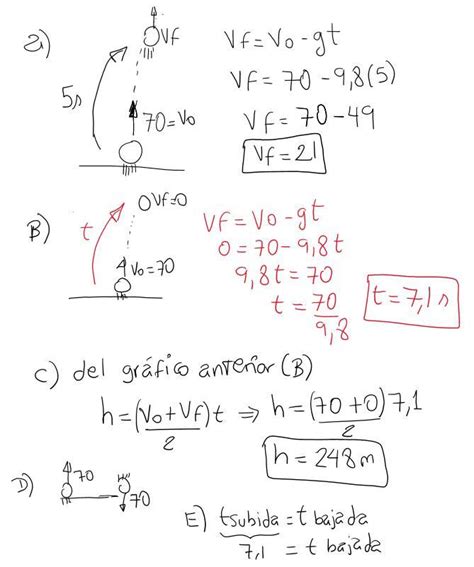 a)
Vf
5s
70=Vo
Vf=Vo-gt
Vf=70-9,8(5)
Vf=70-49
Vf=21
B)
t
Vf=0
Vo=70
Vf=Vo-gt
0=70-9,8t
9,8t=70
t=70/9,8
t=7,1s
C) del gráfico anterior (B)
h=(Vo+Vf)t/2 ⇒ h=(70+0)7,1/2
h=248m
D)
70
70
E) tsubida=t bajada
7,1 = t bajada